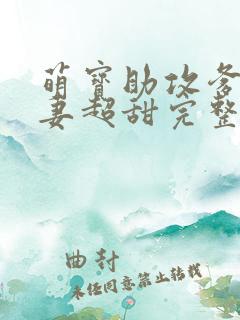 萌宝助攻爹
妻超甜完整
曲封
未经同意禁止转载